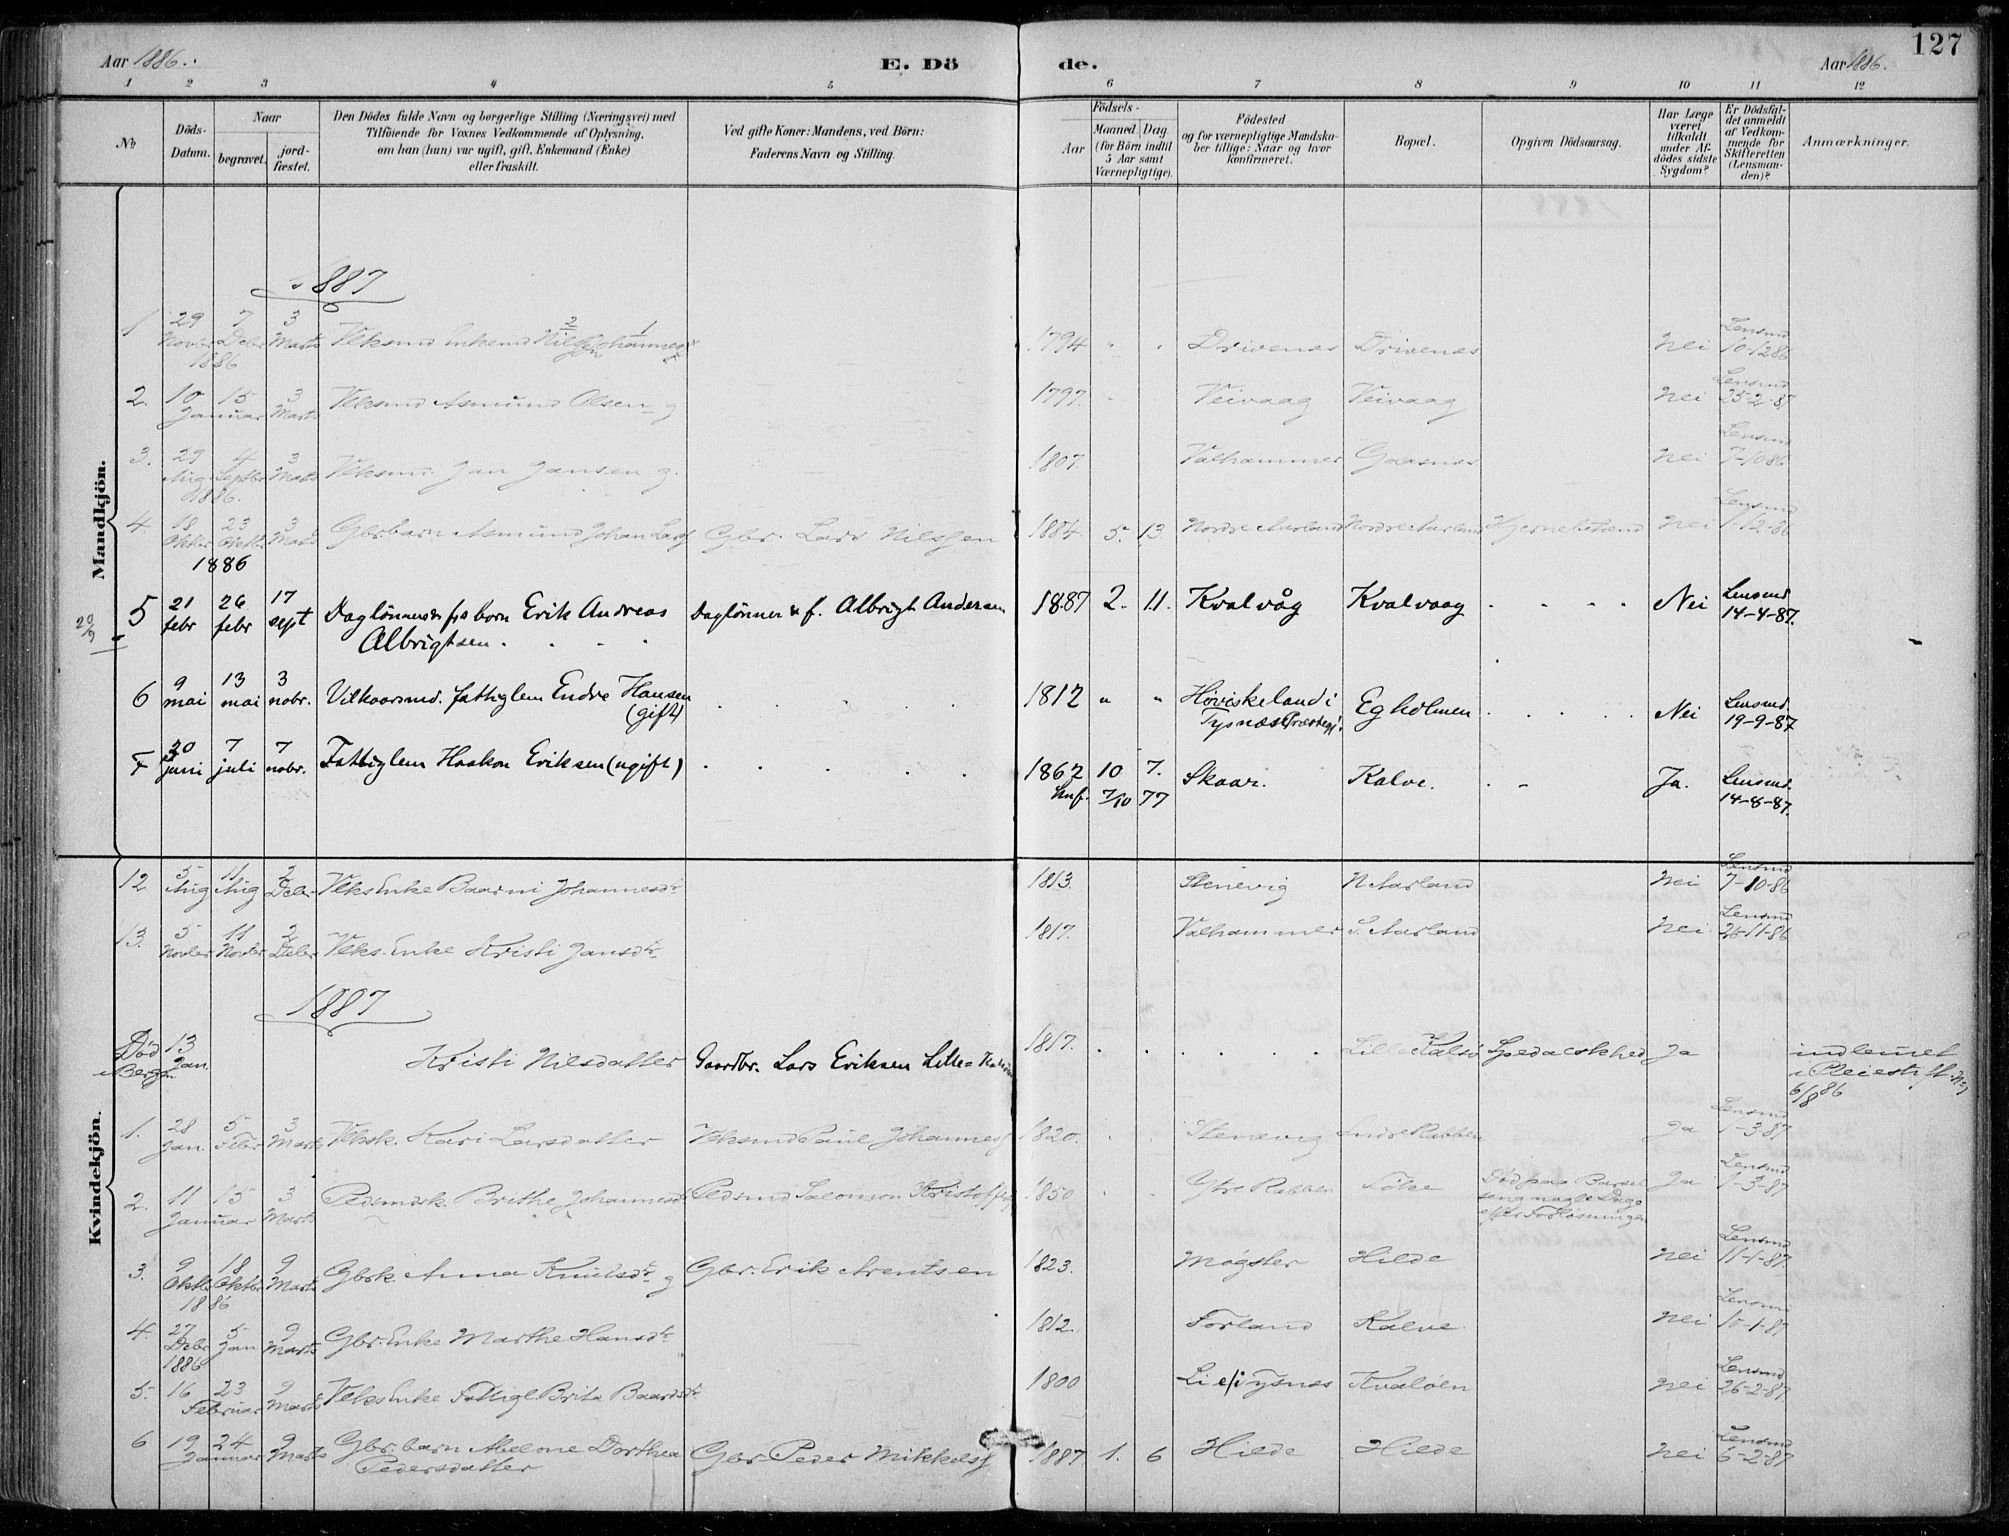 127
Aar 1886. E. Dö de. Aar 1886.
1 2 3 4 5 6 7 8 9 10 11 12
No Döds-Datum. Naar begravet. jordfæstet. Den Dödes fulde Navn og borgerlige Stilling (Næringsvei) med Tilföiende for Voxnes Vedkommende af Oplysning, om han (hun) var ugift, gift, Enkemand (Enke) eller fraskilt. Ved gifte Koner: Mandens, ved Börn: Faderens Navn og Stilling. Födsels- Aar Maaned. Dag (for Börn indtil 5 Aar samt Værnepligtige). Födested og for værnepligtige Mandskaber tillige: Naar og hvor konfirmeret. Bopæl. Opgiven Dödsaarsag. Har Læge været tilkaldt under Afdödes sidste Sygdom? Er Dödsfaldet anmeldt af Vedkommende for Skifteretten (Lensmanden)? Anmærkninger.
Mandkjön.
1887
1 29 Novbr 1886 7 Debr 3 Marts Vlksmd Enkemd Nils Johannes 1794 " " Drivenes Drivenes Nei Lensmd 10-12 86
2. 10 15 Januar 3 Marts Vlksmd Asmund Olsen g 1797 Veivaag Veivaag Nei Lensmd 25-2-87
3. 29 Aug. 4 Septbr 1886. 3 Marts Vlksmd Jan Jansen g. 1807. Valhammer Gaasnes Nei Lensmd 7-10 86
4 18 Oktbr 23 Oktbr 1886 3 Marts Gbrbarn Asmund Johan Lars Gbr. Lars Nilsen 1884. 5. 13. Nordre Aarland Nordre Aarland Nei Lensmd 1-12-86
20/9 5 21 febr 26 febr 17 sept Daglønnende fs born Erik Andreas Daglønner & f. Albrigt Andersen 1887 2. 11. Kvalvåg Kvalvaag Nei Lensmd 14-4-87.
Albrigtsen
6 9 mai 13 mai 3 nobr. Vilkaarsmd. fattiglem Endre Hansen (gift) 1812 " " Høviskeland i Tysnæs Præstegj. Egholmen Nei Lensmd. 19-9-87
7 20 juni 7 juli 7 nobr. Fattiglem Haakon Eriksen (ugift) 1862 10 7. Skaar. Kalve. Ja. Lensmd. 14-8-87.
knf. 7/10 77
Kvindekjön.
12 5 Aug 11 Aug 2 Debr Vlks Enke Baarni Johannesdr 1813. Stenevig N Aarland Nei Lensmd 7-10-86
13. 5 Novbr 11 Novbr 2 Debr Vlks. Enke Kristi Jansdr 1817. Valhammer S. Aarland Nei Lensmd 26-11-86
1887
Død Bergen 13 Jan Kristi Nilsdatter Gaardbr. Lars Eriksen Lille= 1817. Lille Kalsø Spedalskhed Ja indlemmet i Pleiestift. 6/8 86
1. 28 Jan. 5 Febr 3 Marts Vlksk. Kari Larsdatter Vlksmd Paul Johannes 1820. Stenevig Indre Rabben Ja Lensmd 1-3-87
2. 11 15 Januar 3 Marts Pedsmdsk. Brithe Johannesdr Pedsmd Salomon Kristoffers 1850 Ytre Rabben Føke Død paa Barselseng nogle Dage efter Forløsningen Ja Lensmd 1-3-87
3. 9 Oktbr 18 Oktbr 1886 9 Marts Gbrsk. Anna Knudsdr g Gbr. Erik Arentsen 1823. Møgster Hilde Nei Lensmd 11-1-87.
4. 27 Debr 1886 5 Jan 9 Marts Gbr. Enke Marthe Hansdr 1812. Forland Kalve Nei Lensmd 10-1-87
5. 16 23 Februar 9 Marts Vlks Enke Fattigl Brita Baardsdr 1800 Li i Tysnes Kvaløen Nei Lensmd 26-2-87
6 19 24 Januar 9 Marts Gbr. barn Abelone Dorthea Pedersdatter Gbr Peder Mikkels 1887 1. 6 Hilde Hilde Nei Lensmd 6-2-87